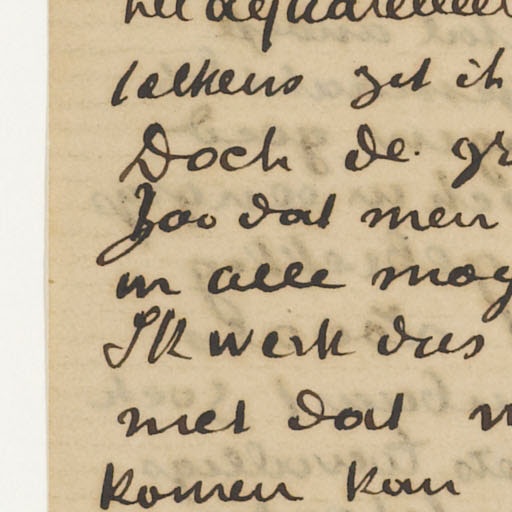 het aquarelleer
telkens zet ik
Doch de gr
Zoo dat men
in alle mog
Ik werk dus
met dat
komen kan